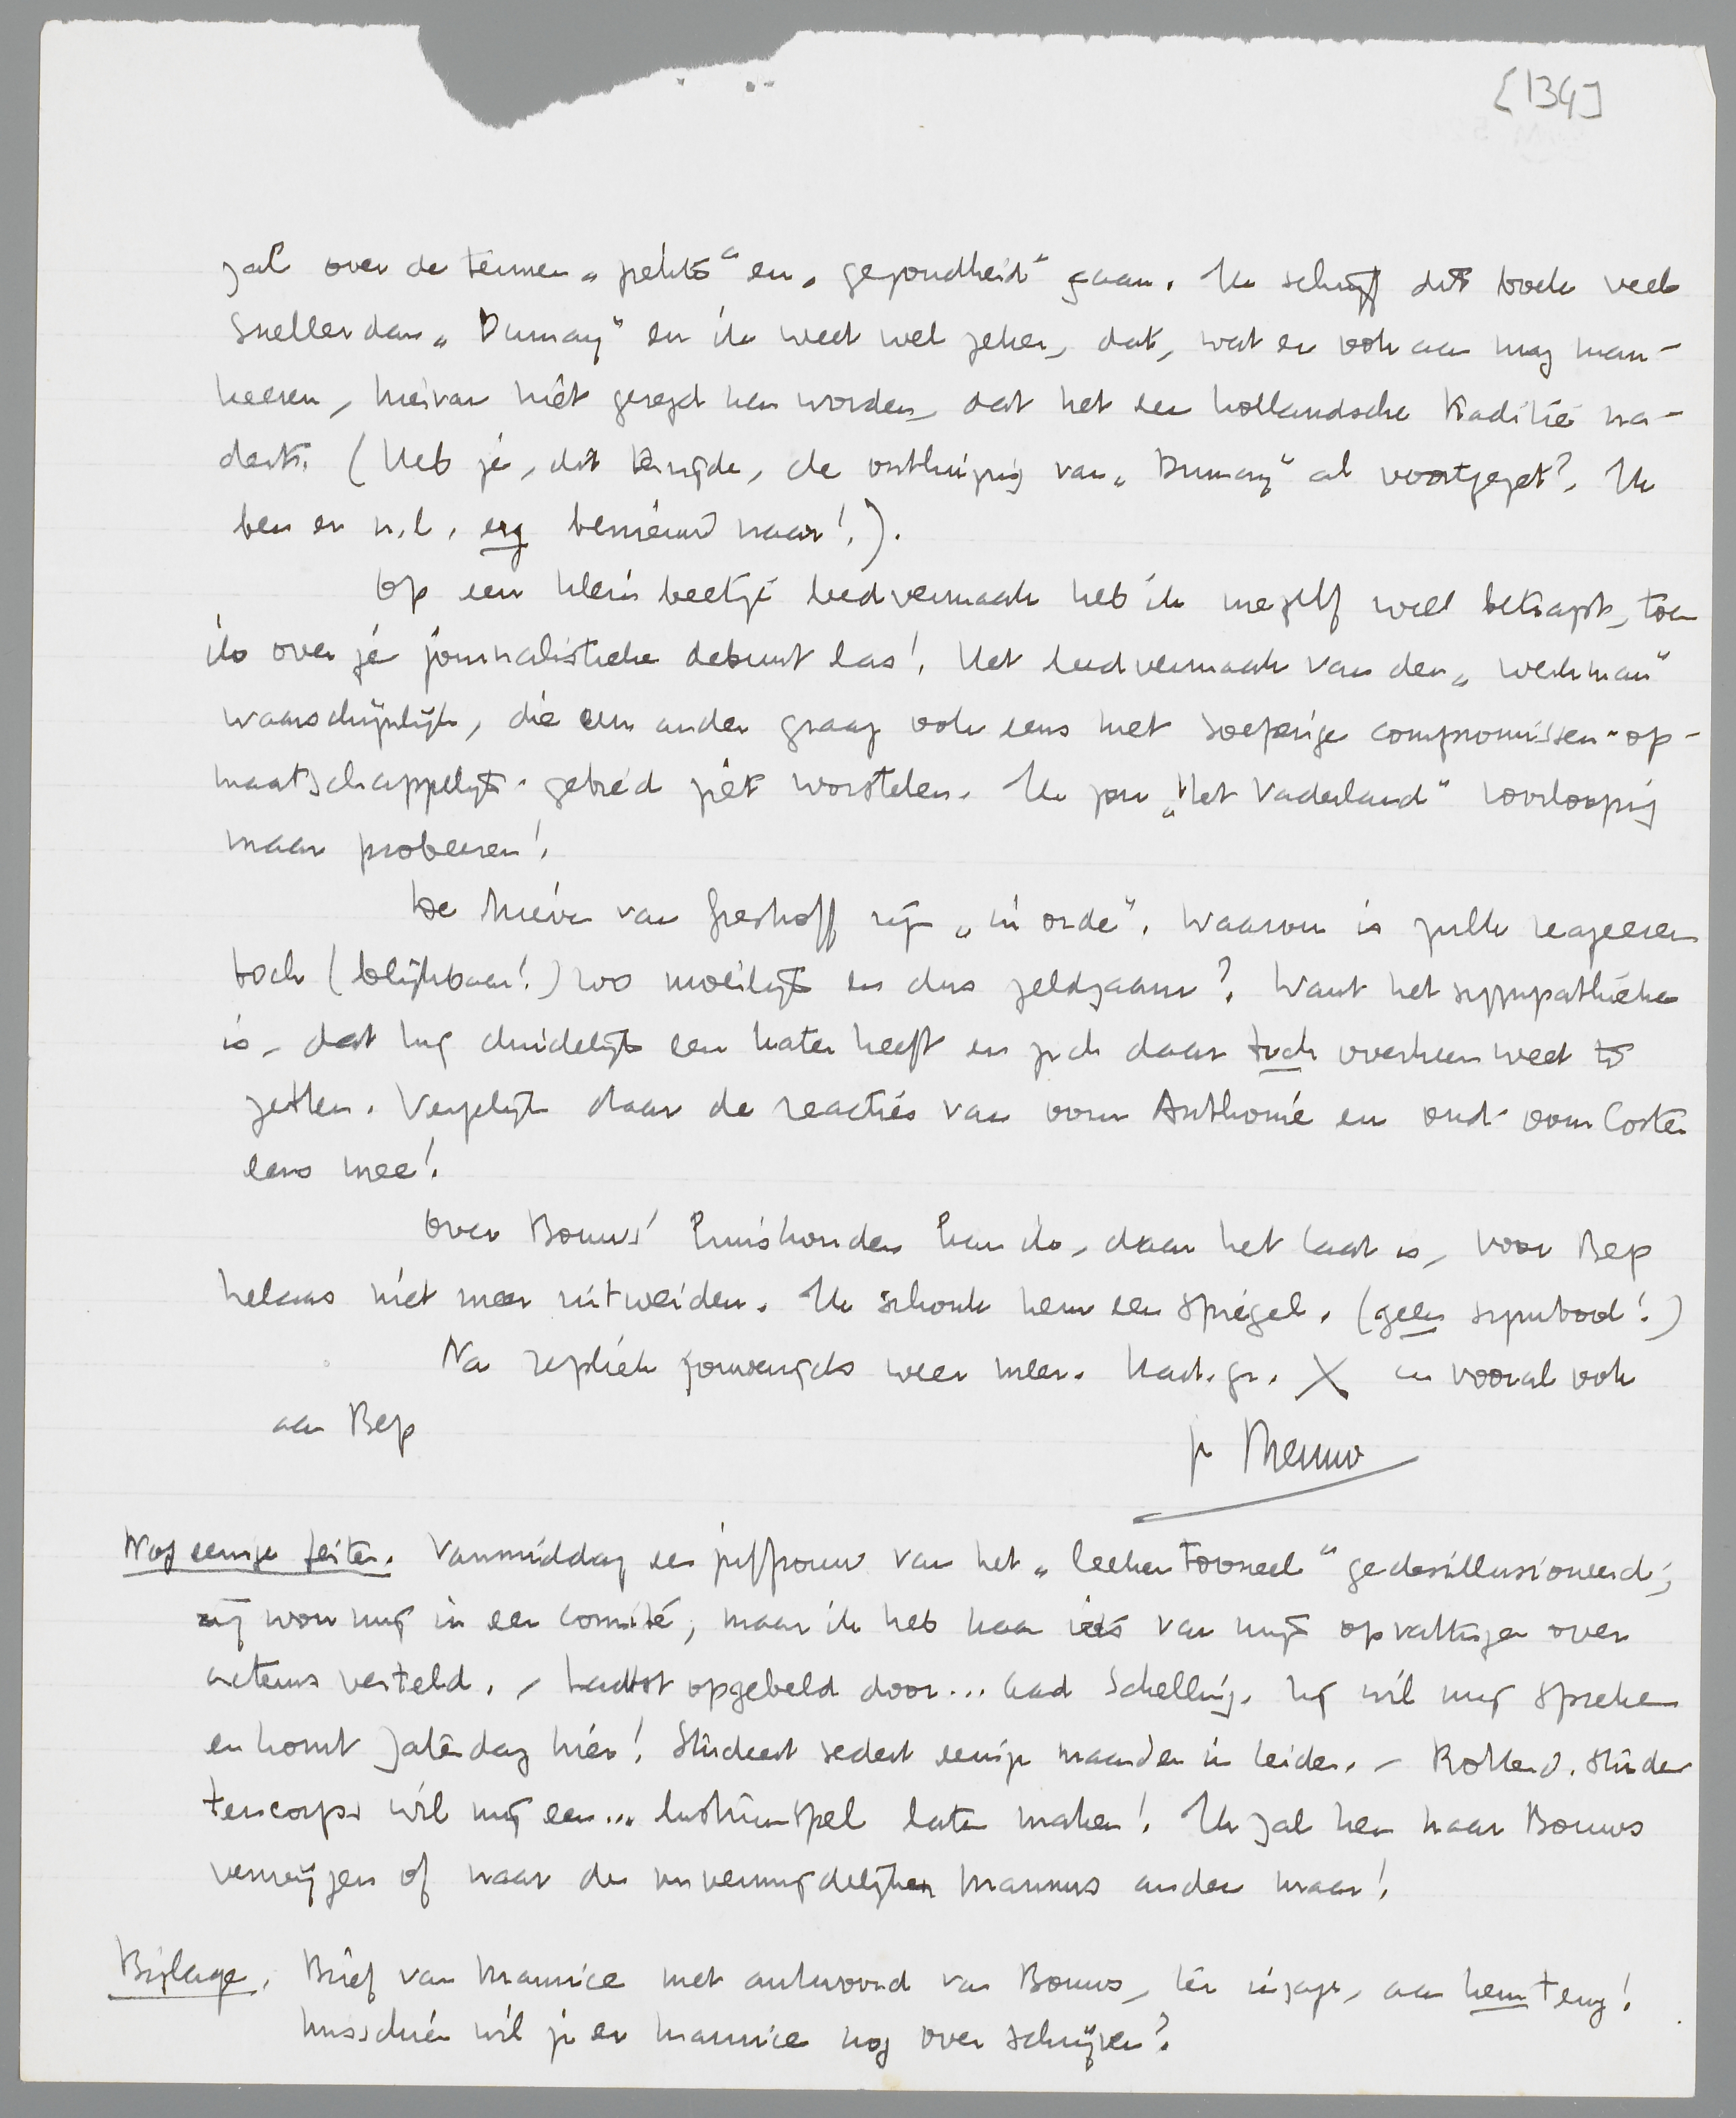 [134]
zal over de termen „ziekte" en „gezondheid" gaan. Ik schrijf dit boek veel
sneller dan „Dumay" en ik weet wel zeker, dat, wat er ook aan mag man-
keeren, hiervan niet gezegd kan worden, dat het een hollandsche traditie na-
dert. (Heb je, dit terzijde, de onthuizing van „Dumay" al voortgezet? Ik
ben er n.l. erg benieuwd naar!).
Op een klein beetje leedvermaak heb ik mezelf wel betrapt, toen
ik over je journalistieke debuut las! Het leedvermaak van den „werkman"
waarschijnlijk, die een ander graag ook eens met soeperige compromissen-op-
maatschappelijk-gebied ziet worstelen. Ik zou „Het Vaderland" voorloopig
maar probeeren!
De brieven van Greshoff zijn „in orde". Waarom is zulk reageeren
toch (blijkbaar!) zoo moeilijk en dus zeldzaam? Want het sympathieke
is, dat hij duidelijk een kater heeft en zich daar toch overheen weet te
zetten. Vergelijk daar de reacties van oom Anthonie en oud-oom Coster
eens mee!
Over Bouws' huishouden kan ik, daar het laat is, voor Bep
helaas niet meer uitweiden. Ik schonk hem een spiegel. (geen symbool!)
Na repliek jouwerzijds weer meer. Hart. gr. X en vooral ook
aan Bep
je Menno
Nog eenige feiten. Vanmiddag een juffrouw van het „Leekentooneel" gedesillusioneerd;
zij wou mij in een comité, maar ik heb haar iets van mijn opvattingen over
acteurs verteld. - Laatst opgebeld door... Aad Schelling. Hij wil mij spreken
en komt Zaterdag hier! Studeert sedert eenige maanden in Leiden. - Rotterd. Studen
tencorps wil mij een... lustrumspel laten maken! Ik zal hen naar Bouws
verwijzen of naar den onvermijdelijken Mannus ander maar!
Bijlage. Brief van Maurice met antwoord van Bouws, ter inzage, aan hem terug!
Misschien wil je er Maurice nog over schrijven?